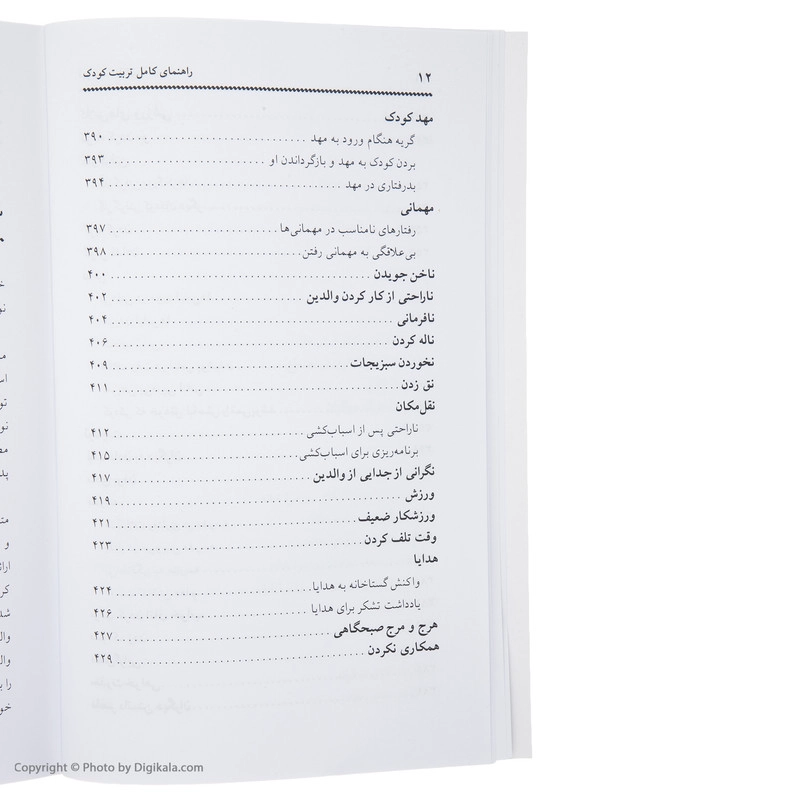 ۱۲ راهنمای کامل تربیت کودک
مهد کودک
گریه هنگام ورود به مهد ۳۹۰
بردن کودک به مهد و بازگرداندن او ۳۹۳
بدرفتاری در مهد ۳۹۴
مهمانی
رفتارهای نامناسب در مهمانی‌ها ۳۹۷
بی‌علاقگی به مهمانی رفتن ۳۹۸
ناخن جویدن ۴۰۰
ناراحتی از کار کردن والدین ۴۰۲
نافرمانی ۴۰۴
ناله کردن ۴۰۶
نخوردن سبزیجات ۴۰۹
نق زدن ۴۱۱
نقل‌مکان
ناراحتی پس از اسباب‌کشی ۴۱۲
برنامه‌ریزی برای اسباب‌کشی ۴۱۵
نگرانی از جدایی از والدین ۴۱۷
ورزش ۴۱۹
ورزشکار ضعیف ۴۲۱
وقت تلف کردن ۴۲۳
هدایا
واکنش گستاخانه به هدایا ۴۲۴
یادداشت تشکر برای هدایا ۴۲۶
هرج و مرج صبحگاهی ۴۲۷
همکاری نکردن ۴۲۹
Copyright © Photo by Digikala.com